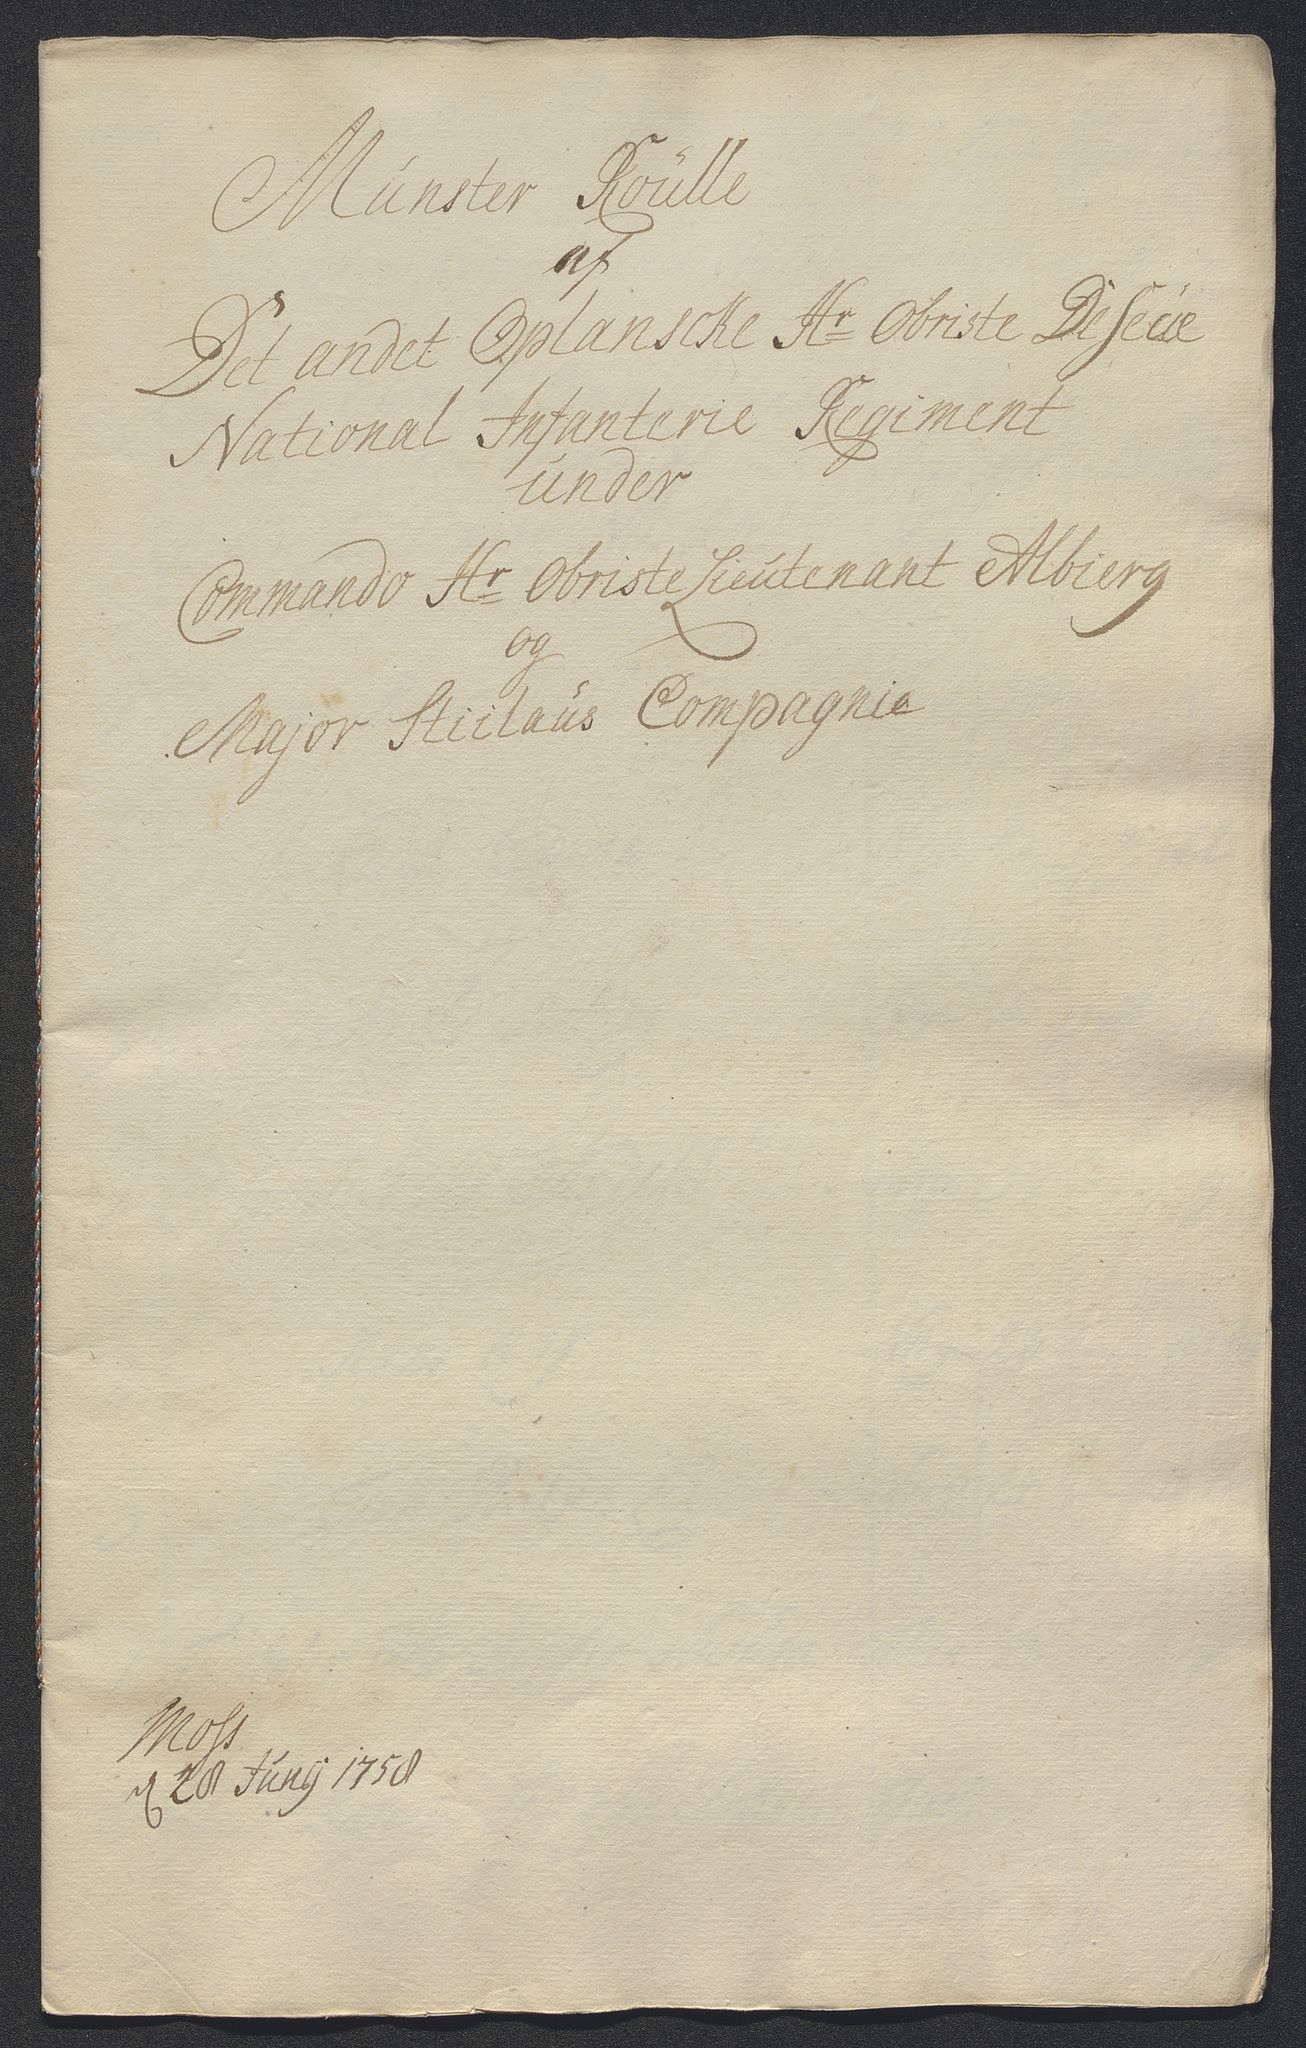 Múnster Roúlle
af
Det andet Oplanscke Hr Obriste De Seúe
National Infanterie Regiment
únder
Commando Hr Obriste Lieútenant Albierg
og
Major Stiilaús Compagnie
Moss
d 28 Junij 1758